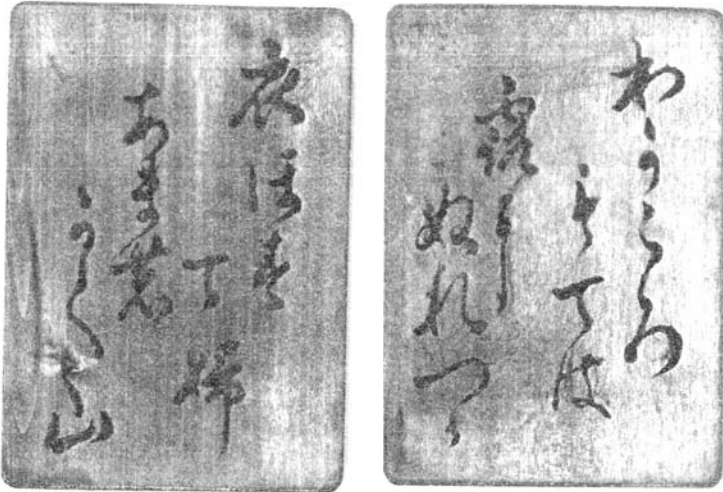 わかころ
もては
露に
ぬれつゝ
衣ほす
てふ
あまの
かく山